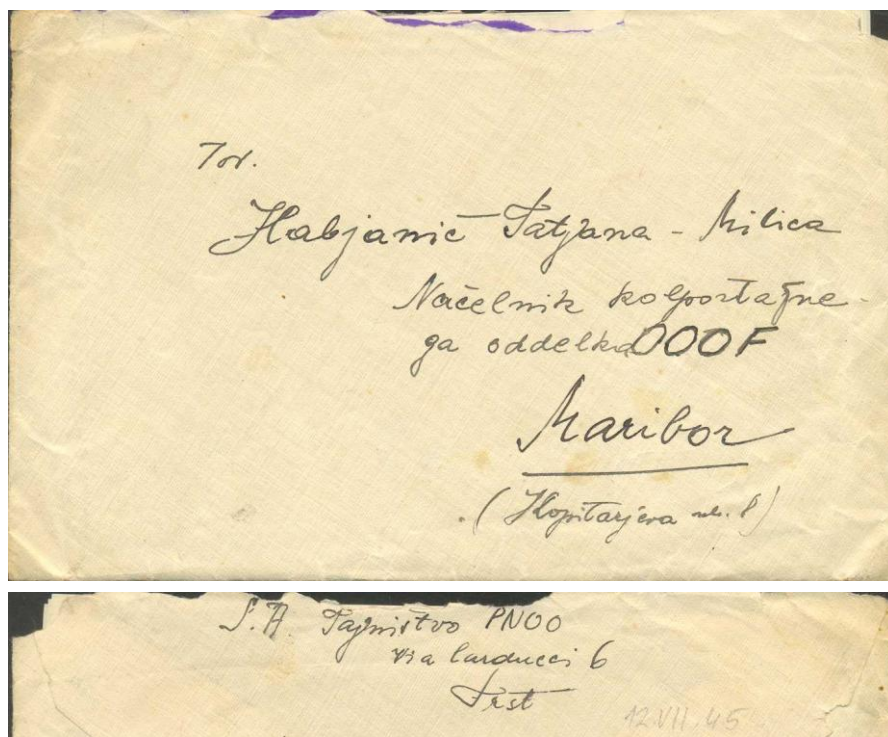 Tov.
Habjanič Tatjana - Milica
Načelnik kolportažne-
ga oddelka OOOF
Maribor
(Kopitarjeva ul. 8)
S.A. Tajništvo PNOO
Via Carducci 6
Trst
12.VII.45